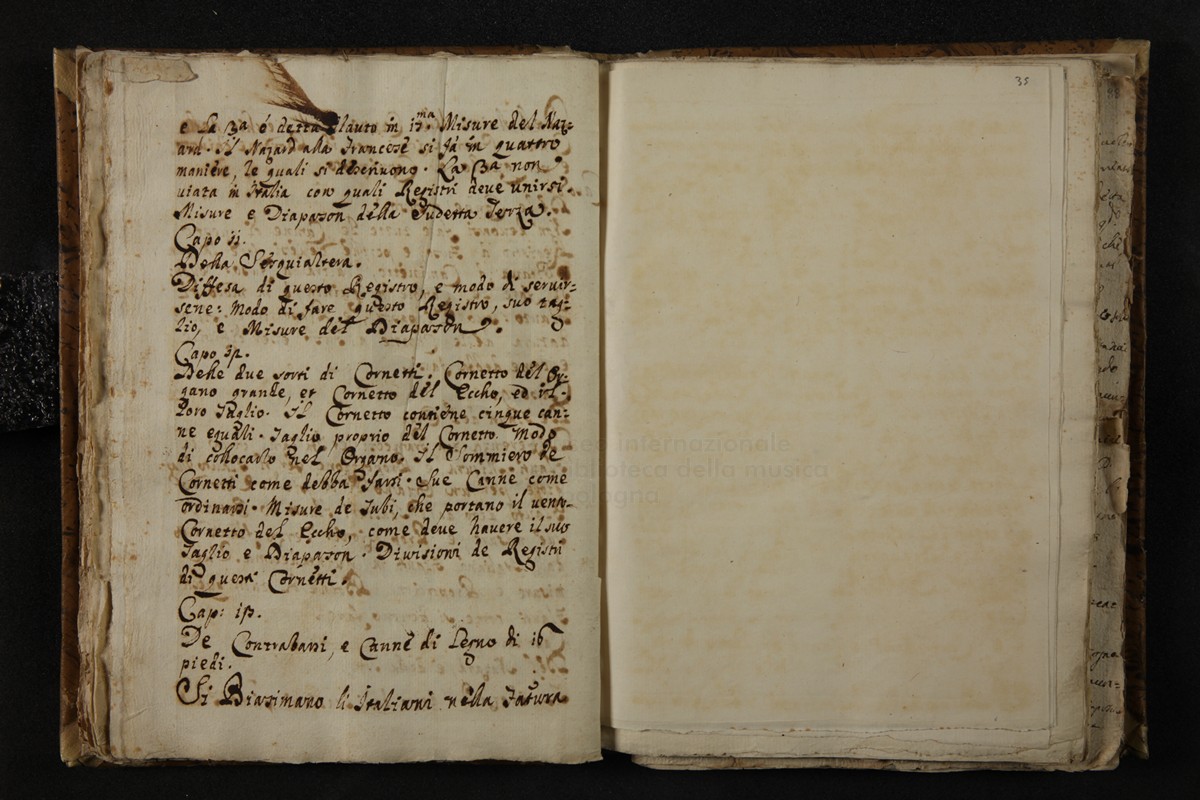 e la 3a ó detta flauto in 17.ma Misure del Naz=
ard. Il Nazard alla Francese si fà in quattro
maniere, le quali si descriuono. La 3a non
uiata in Italia con quali Registri deve unirsi.
Misure e Diapason della Sudetta Terza.
Capo 11.
Della Sesquialtera.
Diffesa di questo Registro, e modo di servir=
sene: Modo di fare questo Registro, suo tag=
lio, e Misure del Diapason.
Capo
Delle due sorti di Cornetti. Cornetto del Or=
gano grande, et Cornetto del Eccho, ed il
loro Taglio. Il Cornetto contiene cinque can=
ne eguali. Taglio proprio del Cornetto. Modo
di collocarlo nel Organo. Il Sommiero de
Cornetti come debba farsi. Sue Canne come
ordinarsi. Misure de Tubi, che portano il vento.
Cornetto del Eccho, come deve havere il suo
Taglio e Diapason. Divisioni de Registri
di questi Cornetti.
Cap: 13.
De Contrabassi, e Canne di Legno di 16
piedi.
Si Biasimano li Italiani nella Fatura
35
museo internazionale
biblioteca della musica
bologna